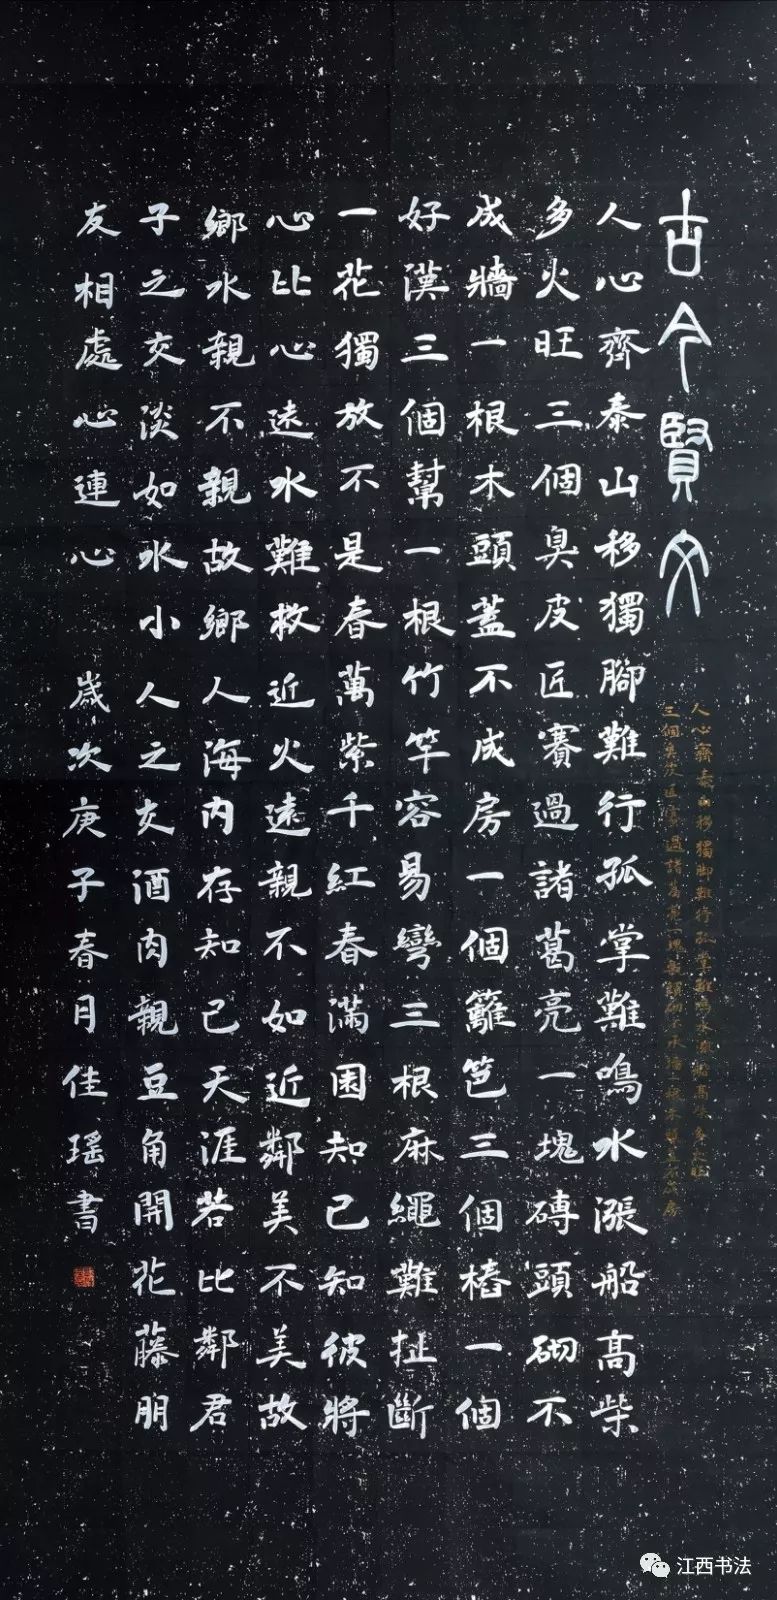 古今賢文
人心齊泰山移獨脚難行孤掌難鳴水漲船高柴多火旺
三個臭皮匠賽過諸葛亮一塊磚頭砌不成墻一根木頭蓋不成房
人心齊泰山移獨腳難行孤掌難鳴水漲船高柴
多火旺三個臭皮匠賽過諸葛亮一塊磚頭砌不
成牆一根木頭蓋不成房一個籬笆三個樁一個
好漢三個幫一根竹竿容易彎三根麻繩難扯斷
一花獨放不是春萬紫千紅春滿園知己知彼將
心比心遠水難救近火遠親不如近鄰美不美故
鄉水親不親故鄉人海內存知己天涯若比鄰君
子之交淡如水小人之交酒肉親豆角開花藤朋
友相處心連心 歲次庚子春月佳瑤書
江西书法